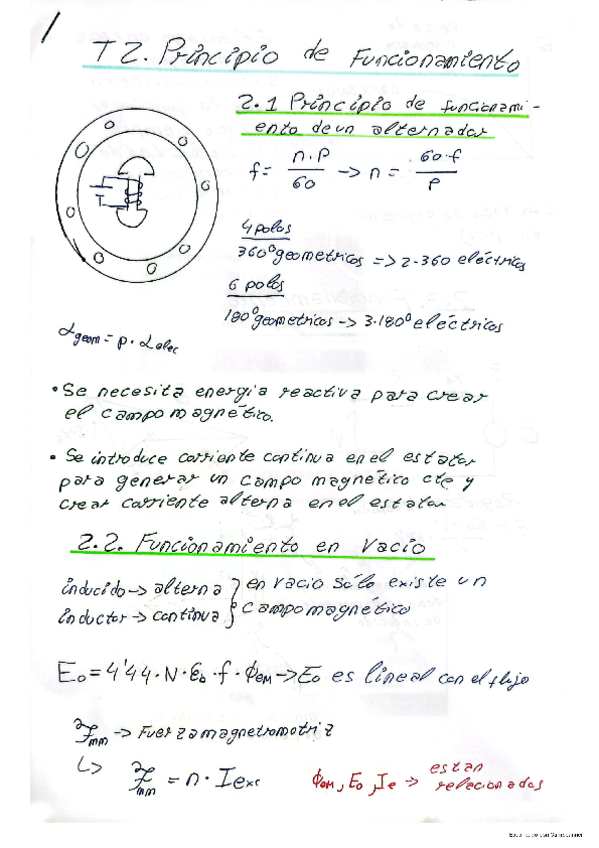 T2. Principio de Funcionamiento
2.1 Principio de funcionami-
ento de un alternador
f = n·P/60 -> n = 60·f/P
4 polos
360° geometricos => 2·360 eléctricos
6 polos
180° geometricos -> 3·180° eléctricos
αgeom = p·αelec
• Se necesita energia reactiva para crear
el campo magnético.
• Se introduce corriente continua en el estator
para generar un campo magnético cte y
crear corriente alterna en el estator
2.2. Funcionamiento en Vacio
inducido -> alterna } en vacio sólo existe un
inductor -> continua } campo magnético
Eo = 4'44·N·εb·f·ΦeM -> Eo es lineal con el flujo
Fmm -> Fuerza magnetromotriz
↳ Fmm = n·Iexc
ΦeM, Eo, Ie -> estan
relacionados